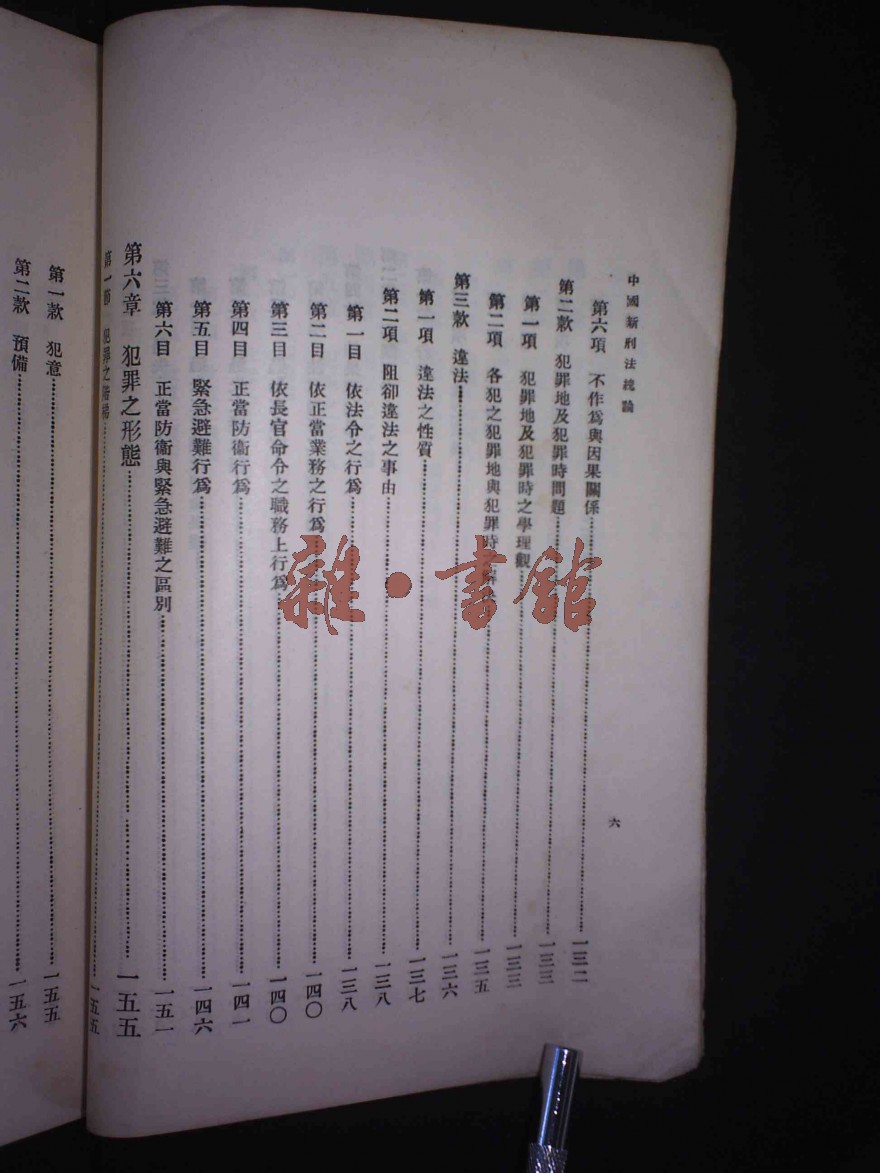 中國新刑法總論
六
第六項 不作爲與因果關係……一三二
第二款 犯罪地及犯罪時問題……一三三
第一項 犯罪地及犯罪時之學理觀……一三三
第二項 各犯之犯罪地與犯罪時……一三五
第三款 違法……一三六
第一項 違法之性質……一三七
第二項 阻卻違法之事由……一三八
第一目 依法令之行爲……一三八
第二目 依正當業務之行爲……一四〇
第三目 依長官命令之職務上行爲……一四〇
第四目 正當防衞行爲……一四一
第五目 緊急避難行爲……一四六
第六目 正當防衞與緊急避難之區別……一五一
第六章 犯罪之形態……一五五
第一節 犯罪之階梯……一五五
第一款 犯意……一五五
第二款 預備……一五六
雜·書館